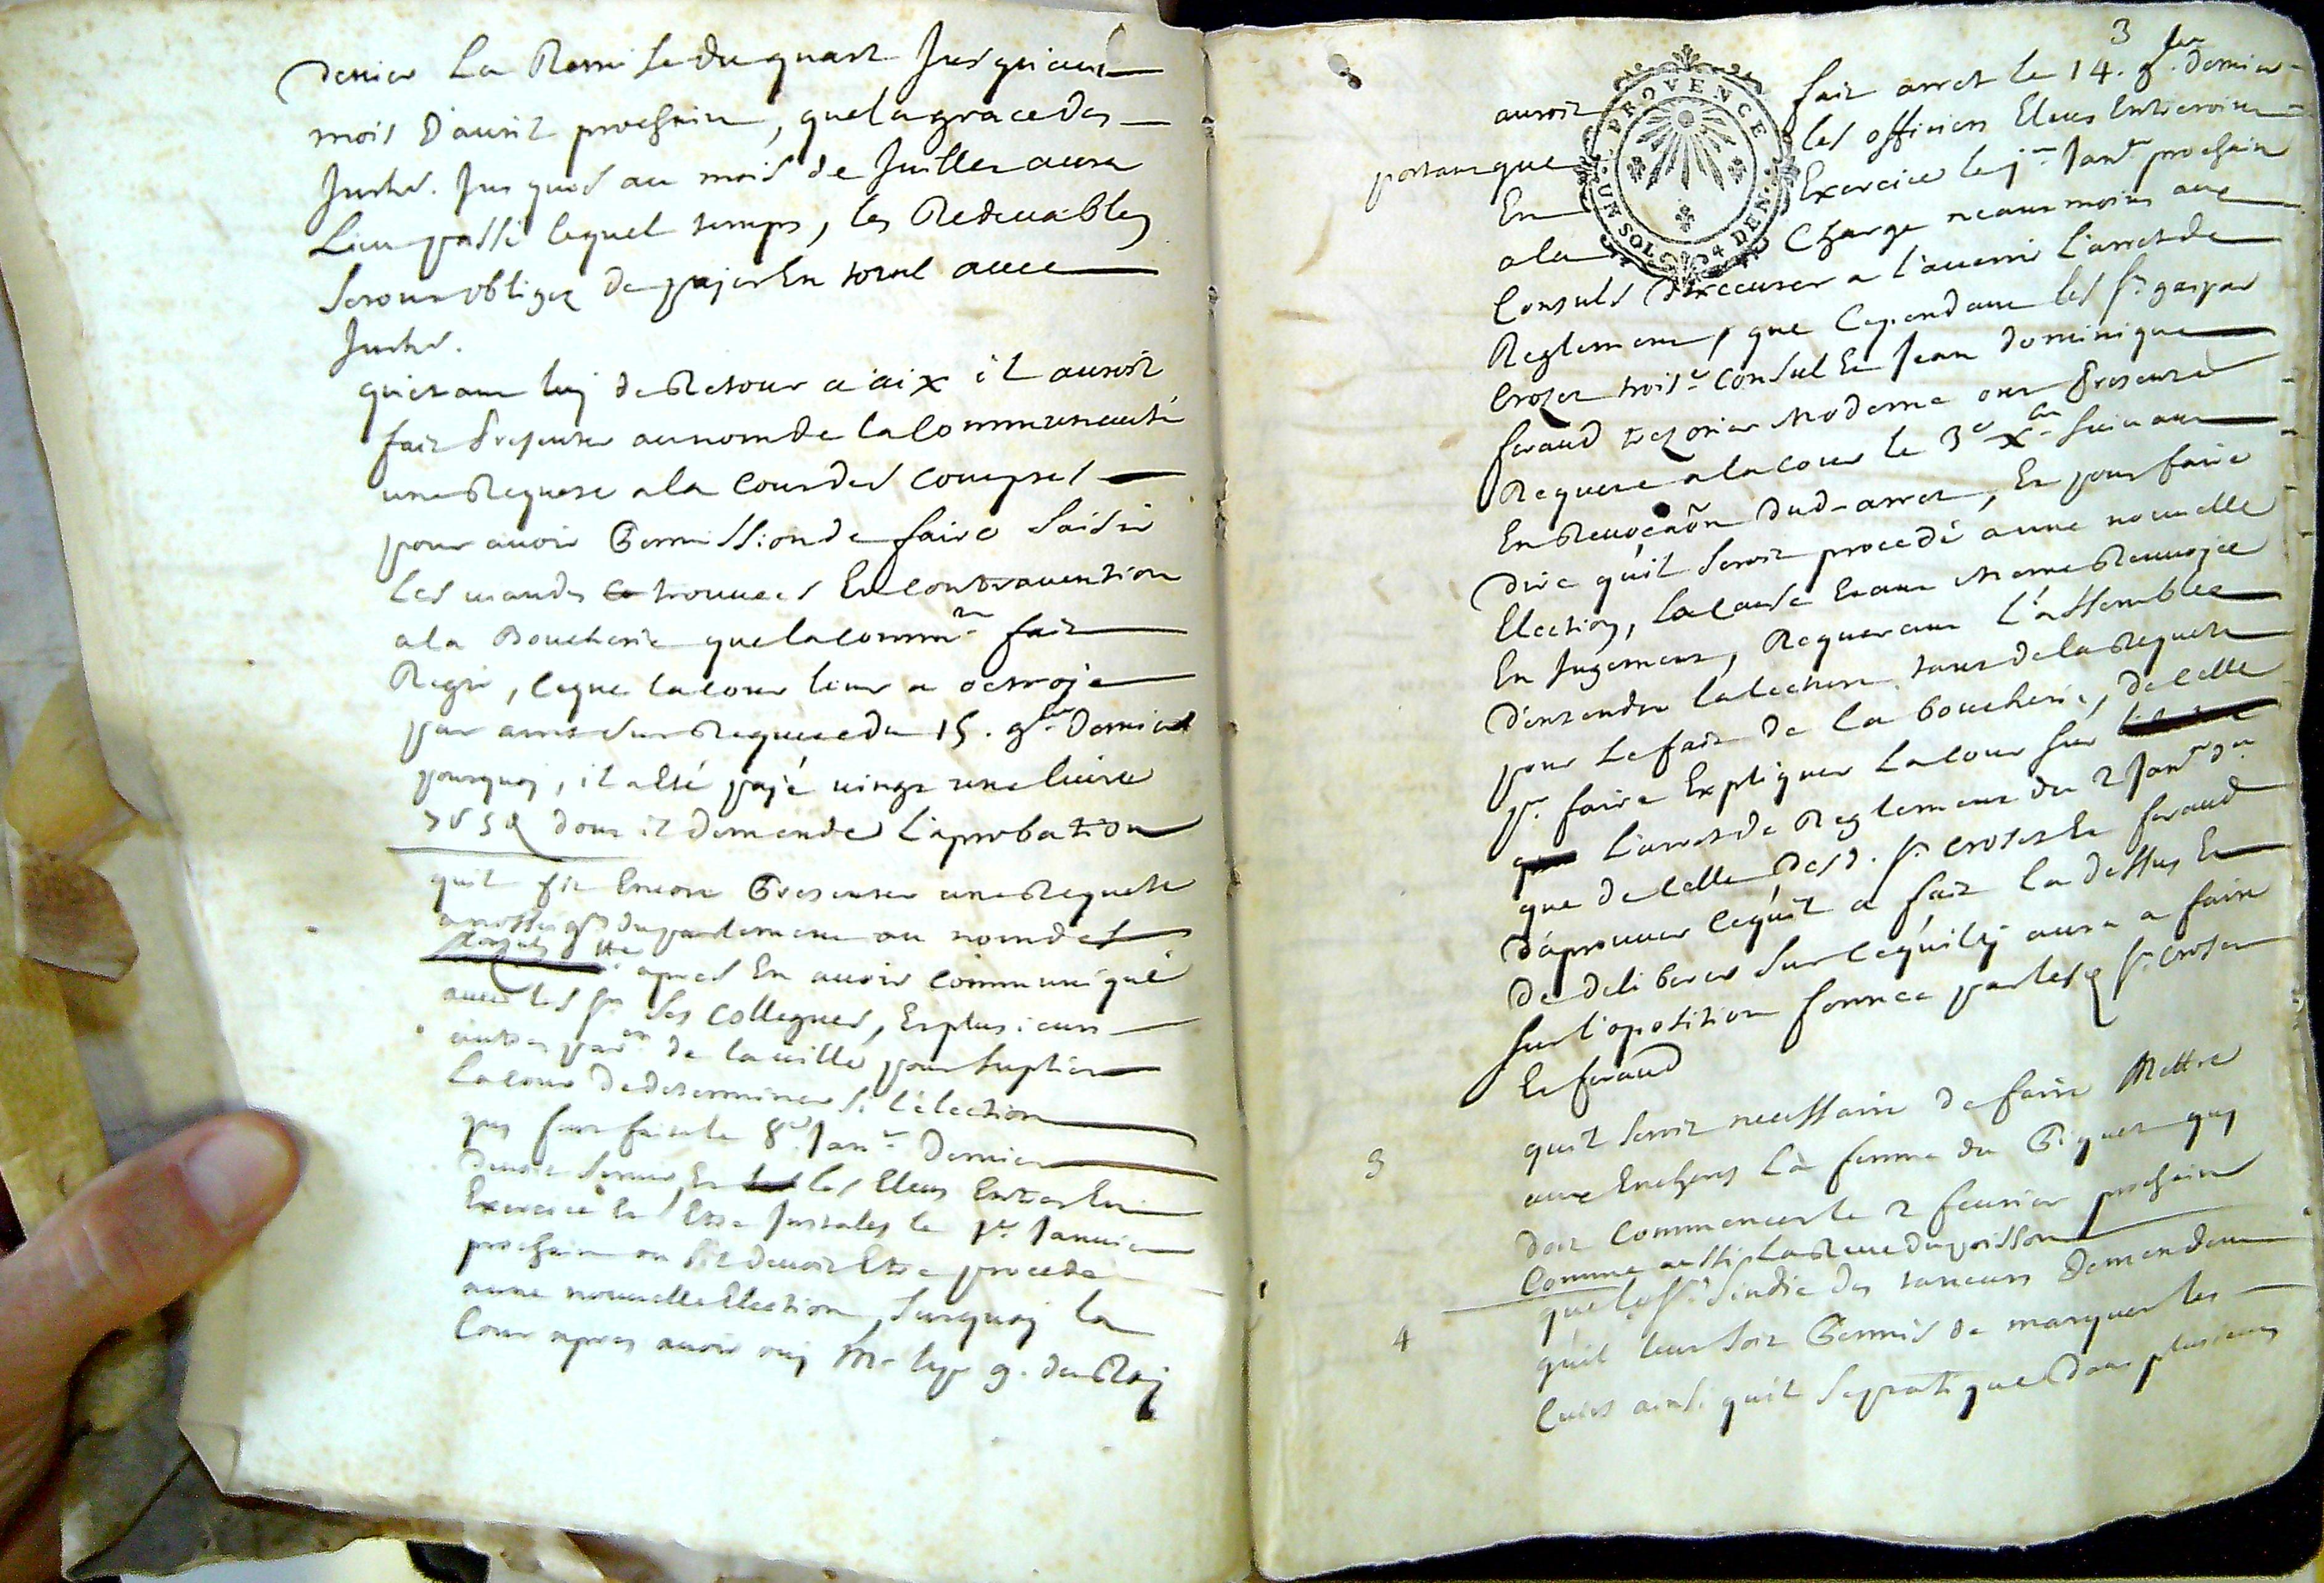 denier La Remise du quart Jusqu'au
mois d'auril prochain, quela grace des
Jnts. Jusques au mois de Juillet aura
Lieu passé lequel temps, les Redeuables
seront obliges de payer En total auec
Jnts.
quiestant luy de Retour a aix il auroit
fait Presenter au nom de la Communeauté
une Requete a la Cour des Comptes
pour auoir Permission de faire saisir
Les viandes trouuees En contrauention
a la Boucherie que la Commté fait
Regir, ceque la cour leur a octroyé
par arret sur Requete du 15. 9bre Dernier
pourquoy, il a esté payé vingt une liure
dont il demande L'aprobation
quil fit Encore Presenter une Requete
a nosseigrs du parlement au nom des
apres En auoir communiqué
auec les srs ses Collegues, Et plusieurs
autres parers de la ville pour suplier
La cour de determiner si l'election
qui fut faite le 8e Janr Dernier
deuoit tenir, Et les Eleus Entrer En
Exercice Et Etre Jnstales le 1er Januier
prochain ou s'il deuoit Etre procedé
a une nouuelle Election, surquoy la
Cour apres auoir ouy Mr le p g. du Roy
3
auroit fait arret le 14. 9bre dernier
portant que les officiers Eleus Entreroint
En Exercice le jer Janr prochain
a la Charge neantmoins aux
PROVENCE
UN SOL 4 DEN.
Consuls d'Executer a l'auenir L'arret de
Reglement, que Cependant les srs gaspar
Crozet troise Consul Et Jean dominique
feraud trezorier Moderne ont Presenté
Requete a la cour le 3e xbre suiuant
En Reuocaõn dud. arret, Et pour faire
dire qu'il seroit procedé a une nouuelle
Election, La cause Etant Meme Renuoyée
En Jugement, Requerant L'assemblée
d'entendre la lecture tant de la Requete
pour Le fait de la boucherie, de celle
pr. faire Expliquer La cour sur
L'arret de Reglement du 2 Janr dr
que de celle desd. srs crozet Et feraud
d'aprouuer cequ'il a fait la dessus Et
de deliberer sur cequ'il y aura a faire
sur l'oposition formée par lesd srs crozet
Et feraud
3 quil seroit necessaire de faire Mettre
aux Encheres La ferme du Piquet qui
doit Commencer le 2 feurier prochain
Comme aussi La Reue du poisson
4 que le sr. Sindic des taneurs Demandent
qu'il leur soit Permis de marquer les
Cuirs ainsi quil se pratique dans plusieurs